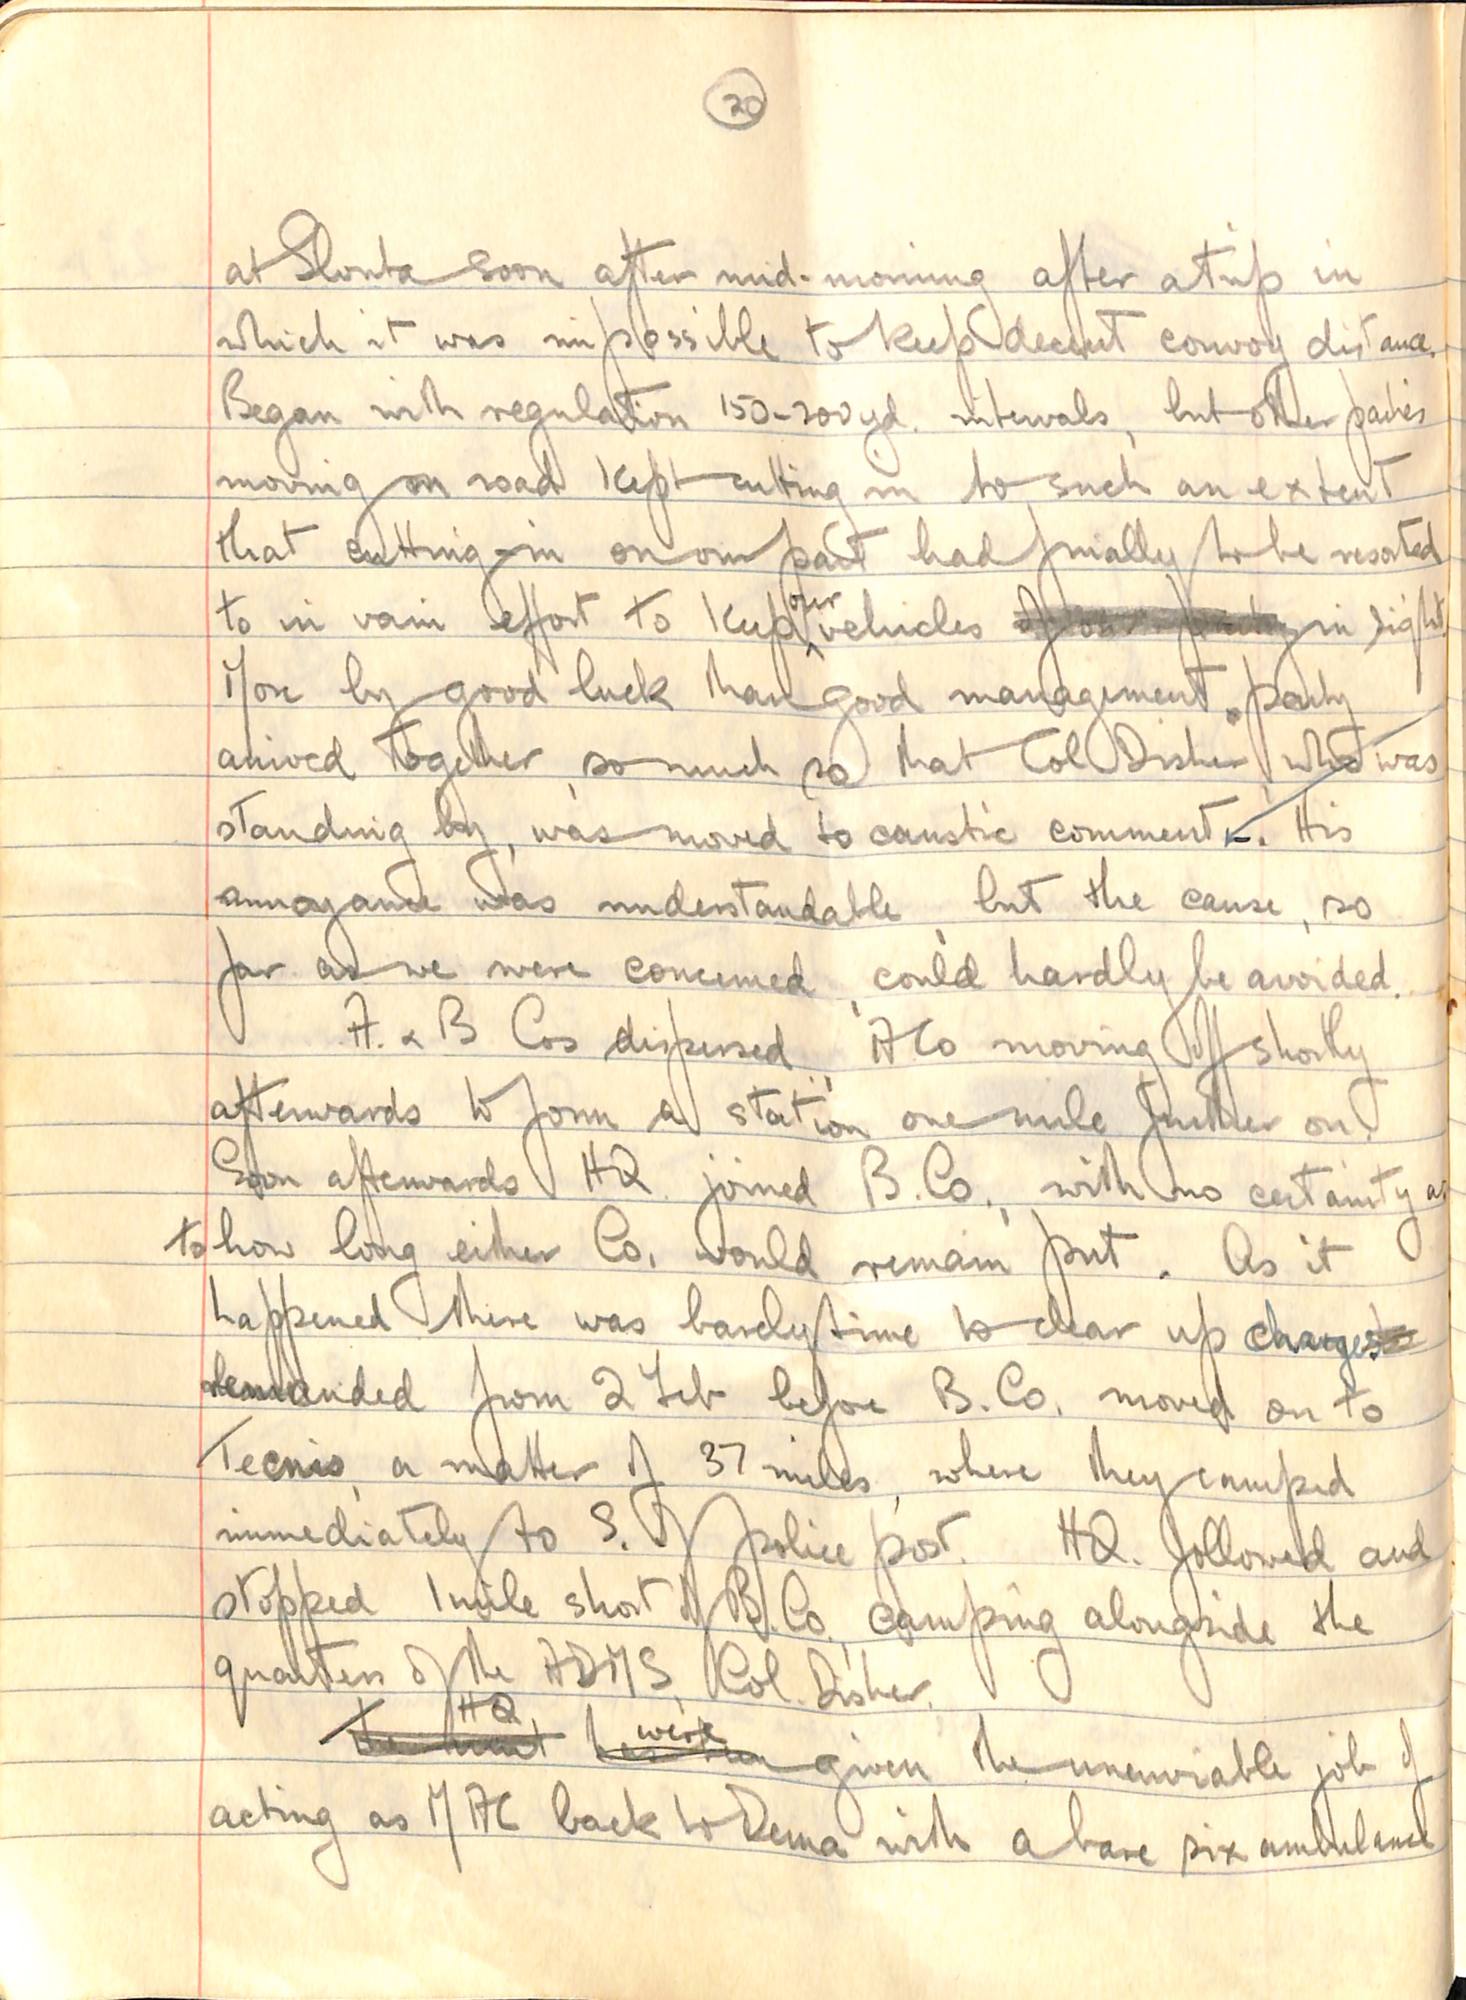 20
at Slonta soon after mid-morning after a trip in
which it was impossible to keep decent convoy distance.
Began with regulation 150-200 yd. intervals, but other parties
moving on road kept cutting in to such an extent
that cutting-in on our part had finally to be resorted
to in vain effort to keep our vehicles in sight.
More by good luck than good management, party
arrived together, so much so that Col Disher who was
standing by, was moved to caustic comment. His
annoyance was understandable, but the cause, so
far as we were concerned, could hardly be avoided.
A. & B Cos dispersed, A Co moving off shortly
afterwards to form a station one mile further on.
Soon afterwards HQ joined B.Co., with no certainty as
to how long either Co. would remain put. As it
happened there was barely time to clear up charges
remanded from 2 Feb before B.Co. moved on to
Tecnis, a matter of 37 miles, where they camped
immediately to S. of police post. HQ. followed and
stopped 1 mile short of B.Co., camping alongside the
quarters of the ADMS, Col. Disher.
The unit HQ were given the unenviable job of
acting as MAC back to Derna with a bare six ambulance